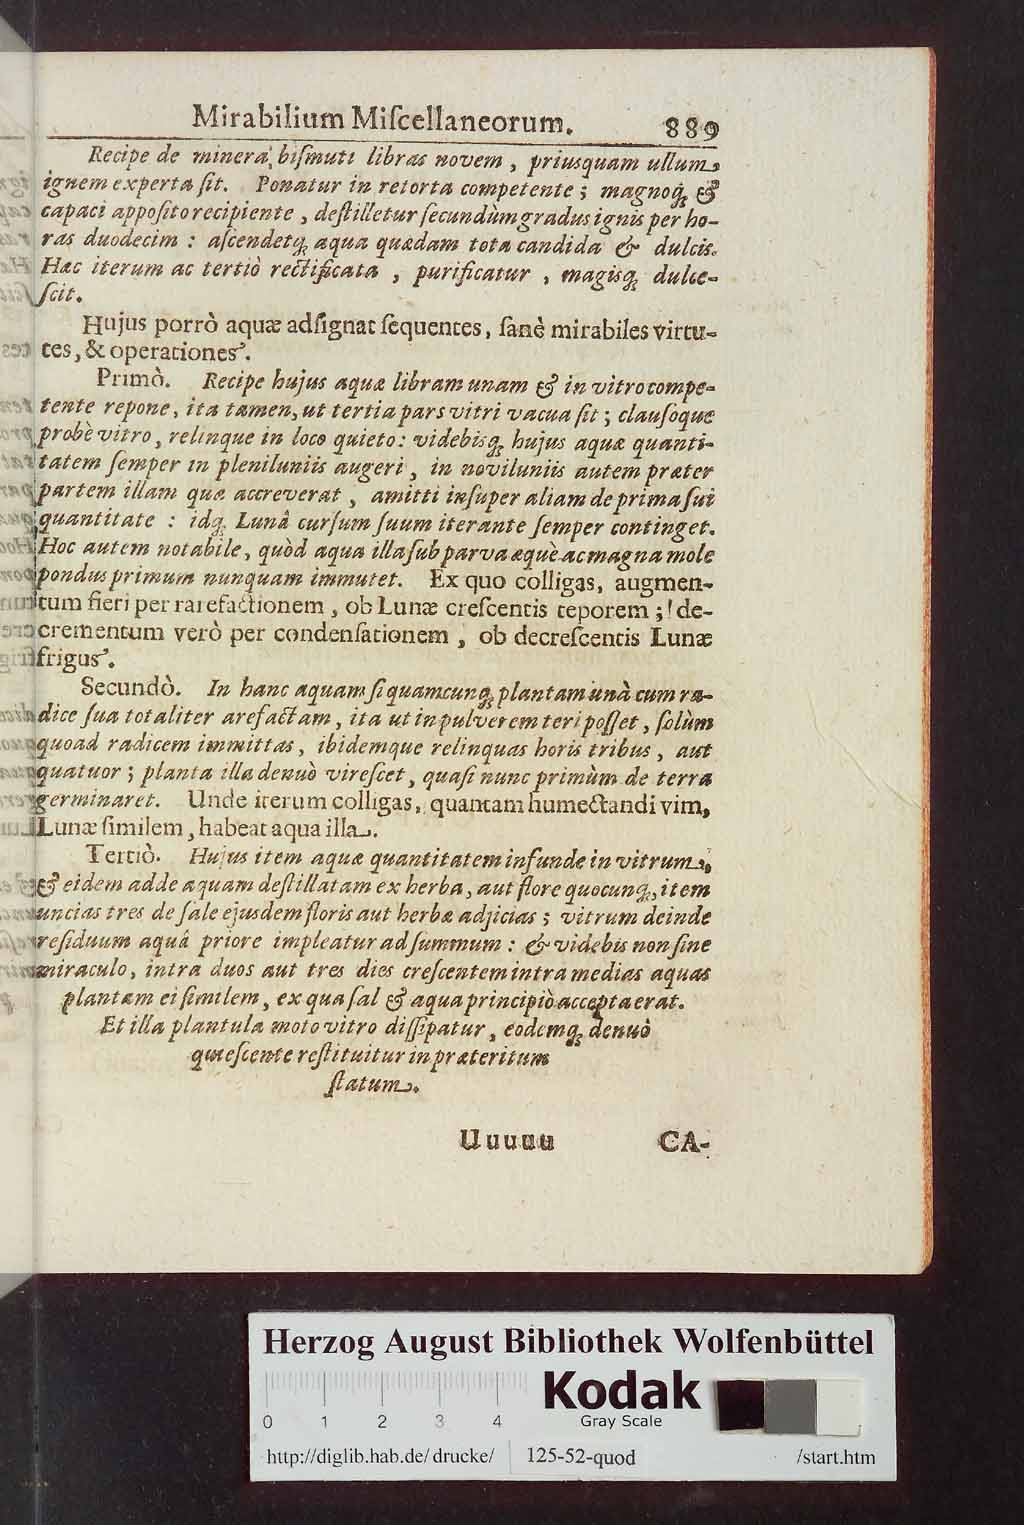 Mirabilium Miſcellaneorum. 889
Recipe de minera biſmuti libras novem, priusquam ullum
ignem experta ſit. Ponatur in retorta competente; magnoq́; &
capaci appoſito recipiente, deſtilletur ſecundùm gradus ignis per ho-
ras duodecim: aſcendetq́; aqua quædam tota candida & dulcis.
Hæc iterum ac tertiò rectificata, purificatur, magisq́; dulce-
ſcit.
Hujus porrò aquæ adſignat ſequentes, ſanè mirabiles virtu-
tes, & operationes.
Primò. Recipe hujus aquæ libram unam & in vitro compe-
tente repone, ita tamen, ut tertia pars vitri vacua ſit; clauſoque
probè vitro, relinque in loco quieto: videbisq́; hujus aquæ quanti-
tatem ſemper in pleniluniis augeri, in noviluniis autem præter
partem illam quæ accreverat, amitti inſuper aliam de prima ſui
quantitate: idq́; Lunâ curſum ſuum iterante ſemper continget.
Hoc autem notabile, quòd aqua illa ſub parva æquè ac magna mole
pondus primum nunquam immutet. Ex quo colligas, augmen-
tum fieri per rarefactionem, ob Lunæ creſcentis teporem; de-
crementum verò per condenſationem, ob decreſcentis Lunæ
frigus.
Secundò. In hanc aquam ſi quamcunq́; plantam unà cum ra-
dice ſua totaliter arefactam, ita ut in pulverem teri poſſet, ſolùm
quoad radicem immittas, ibidemque relinquas horis tribus, aut
quatuor; planta illa denuò vireſcet, quaſi nunc primùm de terra
germinaret. Unde iterum colligas, quantam humectandi vim,
Lunæ ſimilem, habeat aqua illa.
Tertiò. Hujus item aquæ quantitatem infunde in vitrum,
& eidem adde aquam deſtillatam ex herba, aut flore quocunq́;, item
uncias tres de ſale ejusdem floris aut herbæ adjicias; vitrum deinde
reſiduum aquâ priore impleatur ad ſummum: & videbis non ſine
miraculo, intra duos aut tres dies creſcentem intra medias aquas
plantam ei ſimilem, ex qua ſal & aqua principiò accepta erat.
Et illa plantula moto vitro diſſipatur, eodemq́; denuò
quieſcente reſtituitur in præteritum
ſtatum.
Uuuuu CA-
Herzog August Bibliothek Wolfenbüttel
Kodak
Gray Scale
0 1 2 3 4
http://diglib.hab.de/drucke/ 125-52-quod /start.htm